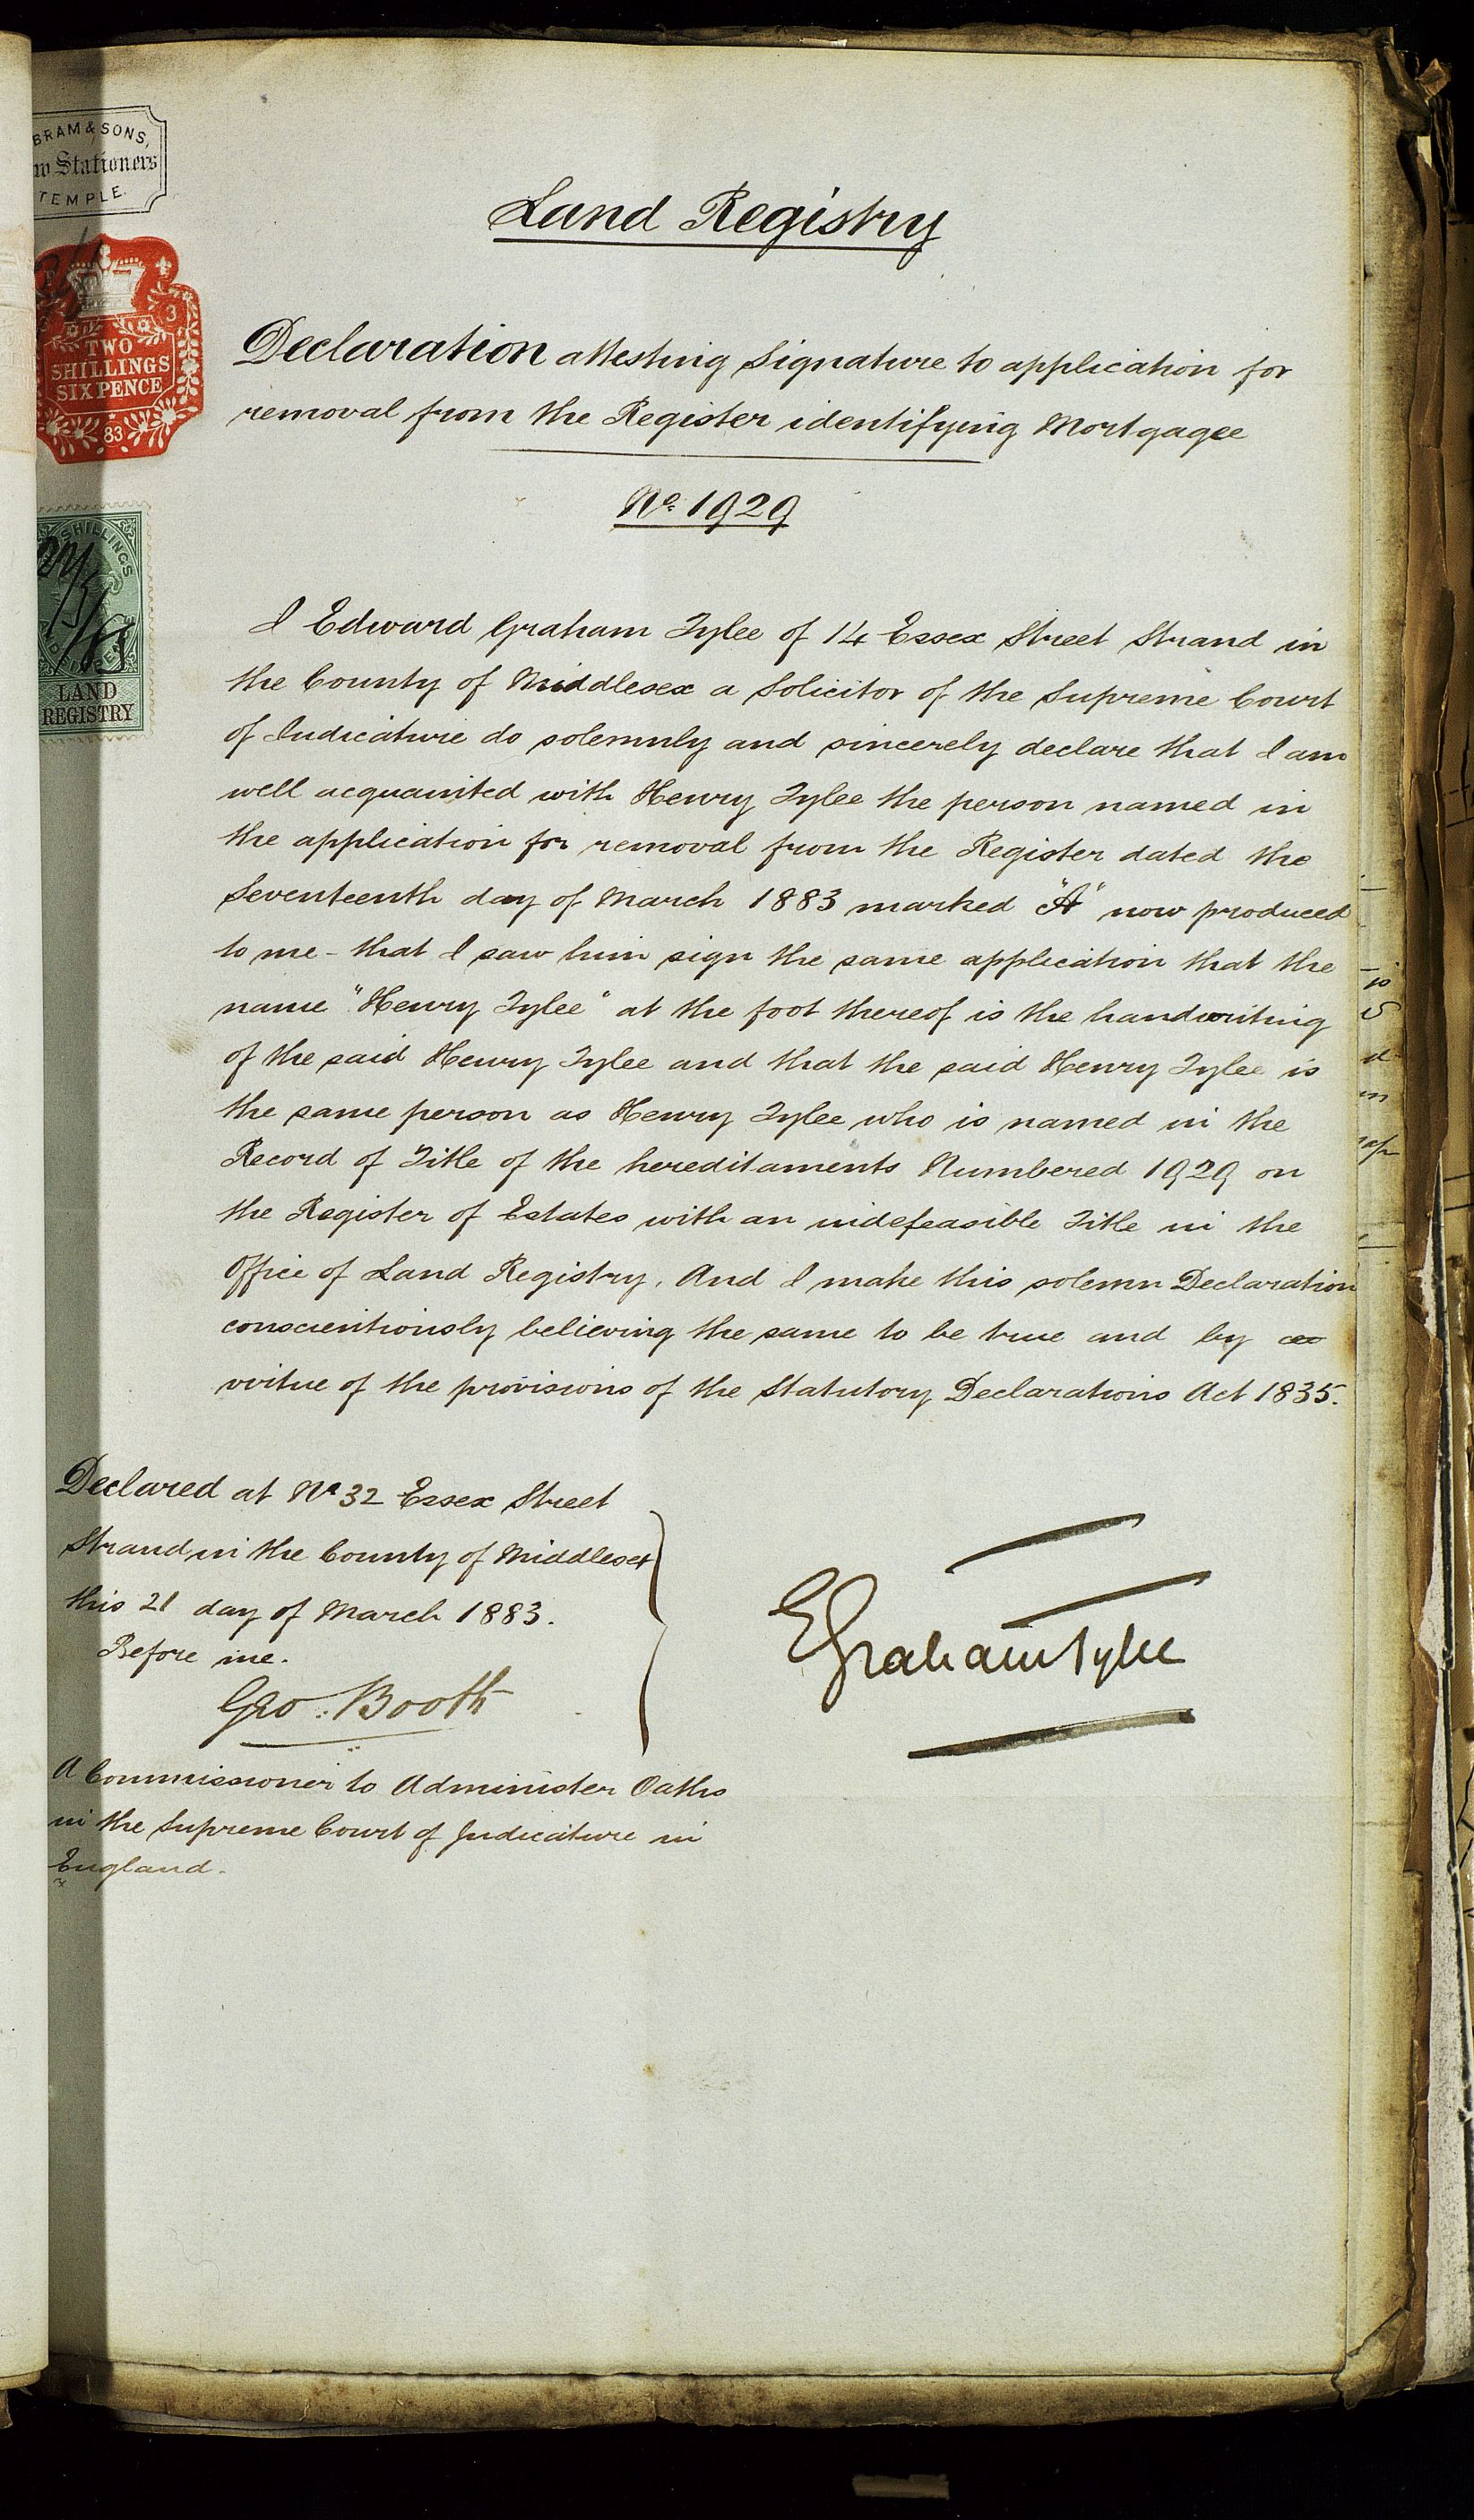 BRAM & SONS,
w Stationers
TEMPLE.
3
TWO
SHILLINGS
SIXPENCE
83
SHILLINGS
LAND
REGISTRY
Land Registry
Declaration attesting Signature to application for
removal from the Register identifying Mortgagee
No. 1929
I Edward Graham Tylee of 14 Essex Street Strand in
the County of Middlesex a Solicitor of the Supreme Court
of Judicature do solemnly and sincerely declare that I am
well acquainted with Henry Tylee the person named in
the application for removal from the Register dated the
Seventeenth day of March 1883 marked "A" now produced
to me - that I saw him sign the same application that the
name "Henry Tylee" at the foot thereof is the handwriting
of the said Henry Tylee and that the said Henry Tylee is
the same person as Henry Tylee who is named in the
Record of Title of the hereditaments Numbered 1929 on
the Register of Estates with an indefeasible Title in the
Office of Land Registry. And I make this solemn Declaration
conscientiously believing the same to be true and by
virtue of the provisions of the Statutory Declarations Act 1835.
Declared at No 32 Essex Street
Strand in the County of Middlesex
this 21 day of March 1883.
Before me.
Geo. Booth
A Commissioner to Administer Oaths
in the Supreme Court of Judicature in
England.
E Graham Tylee